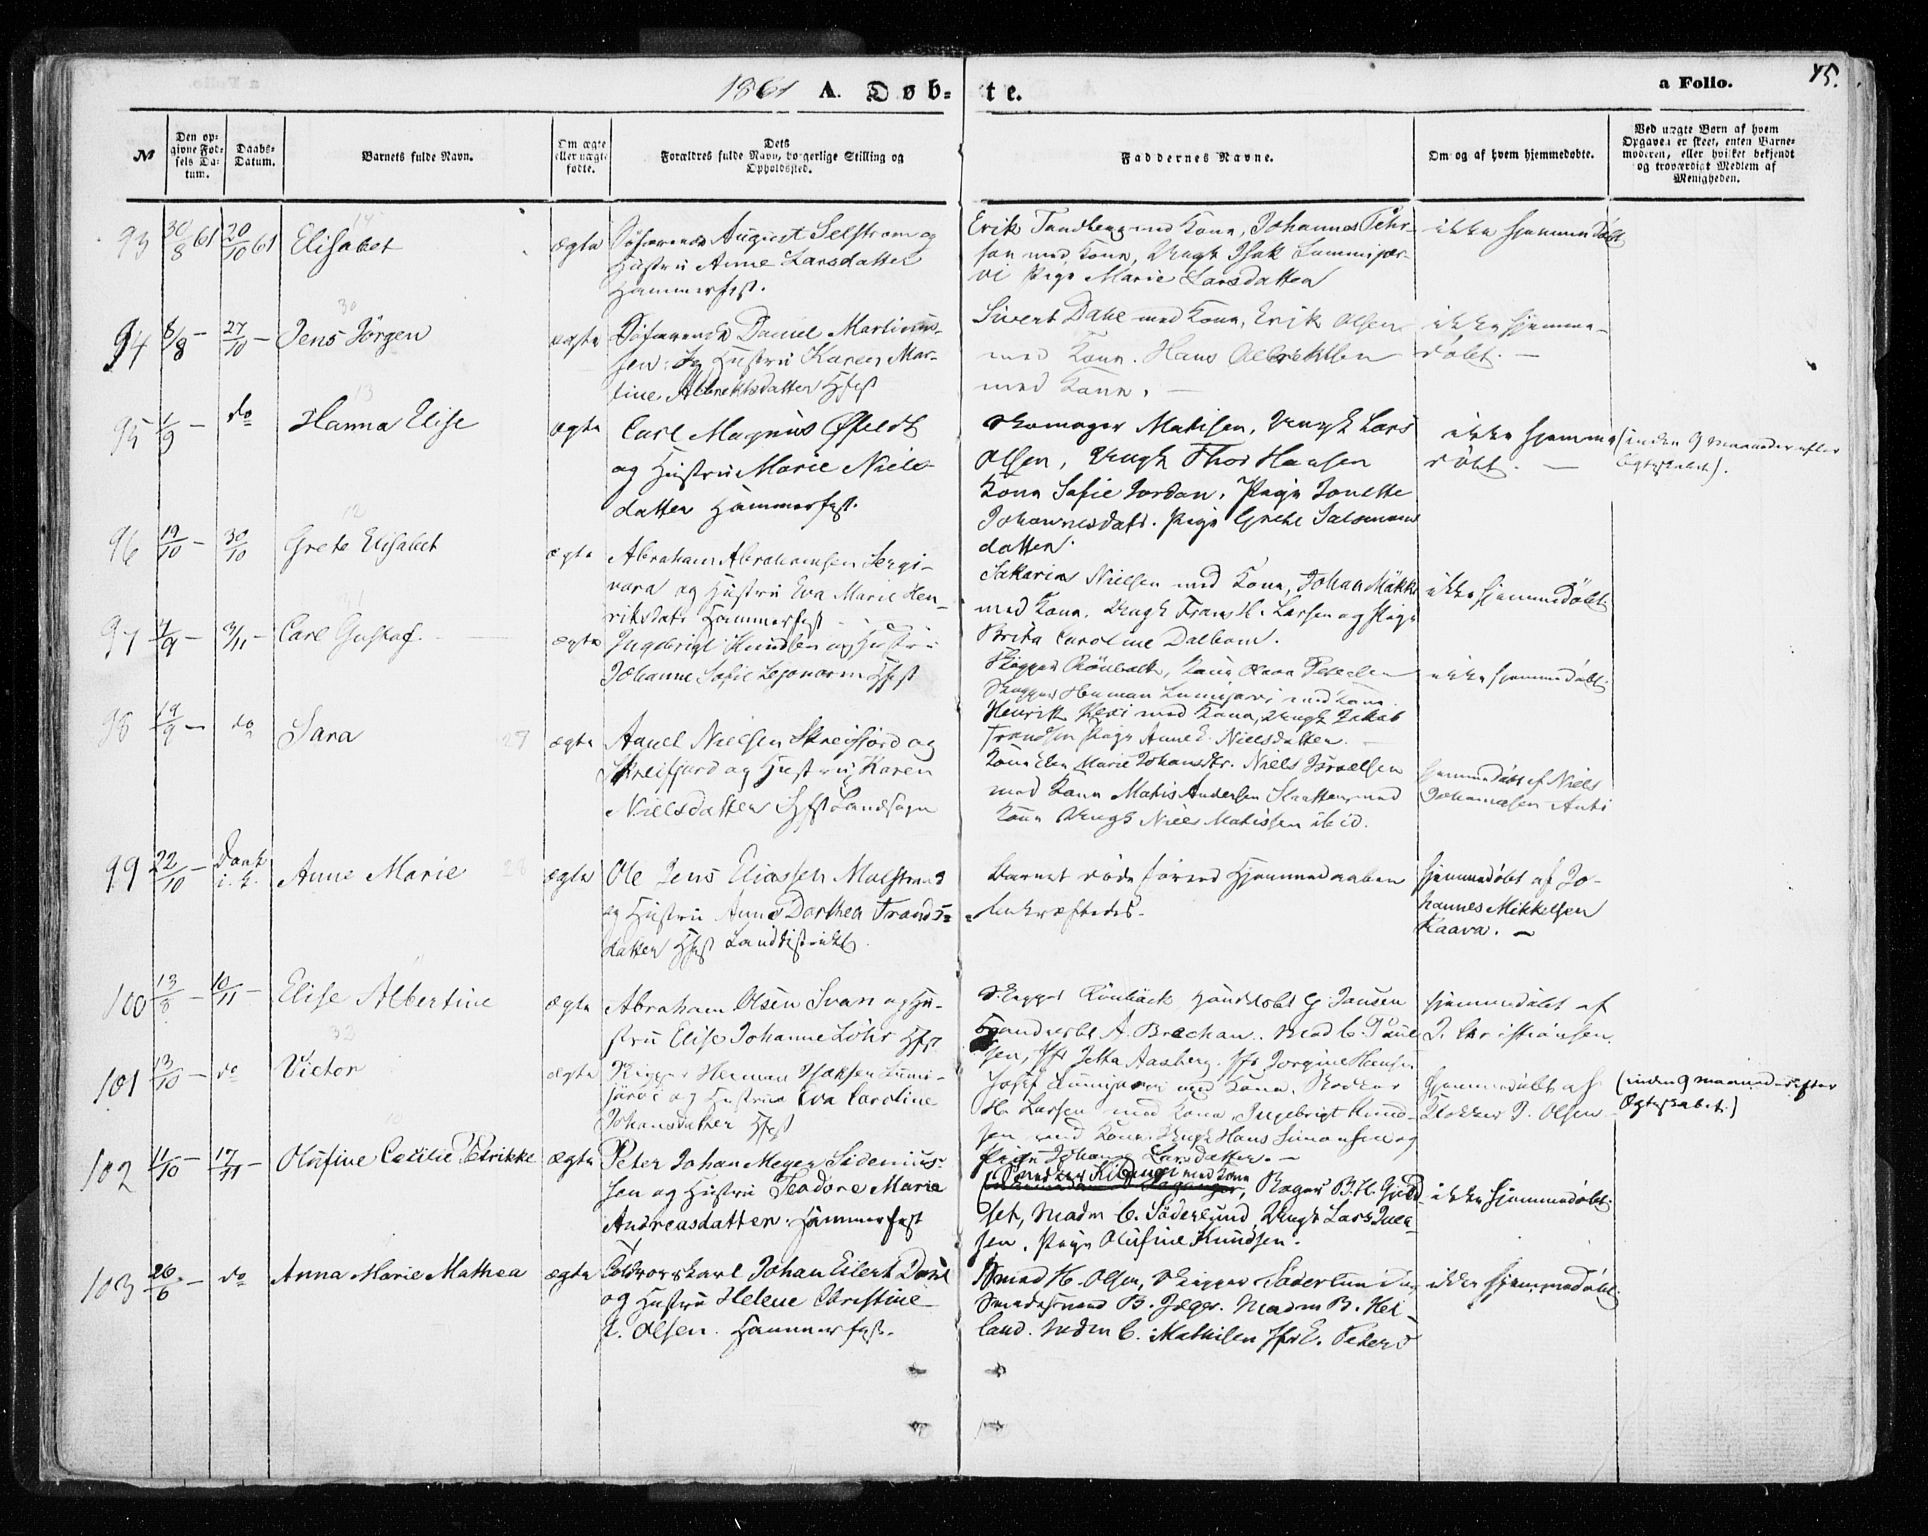 1861 A. Døb- te. a Folio. 45.
№
Den op-
givne Fød-
sels Da-
tum.
Daabs-
Datum.
Barnets fulde Navn.
Om ægte
eller uægte
fødte.
Dets
Forældres fulde Navn, borgerlige Stilling og
Opholdssted.
Faddernes Navne.
Om og af hvem hjemmedøbte.
Ved uægte Børn af hvem
Opgaven er skeet, enten Barne-
moderen, eller hvilket bekjendt
og troværdigt Medlem af
Menigheden.
93 30/8 61 20/10 61 Elisabet ægte August Selstrom og
Hustru Anne Larsdatter
Hammerfest.
Erik Tandberg med Kone, Johannes Pehr-
son med Kone, Ungk Isak Lummijær-
vi Pige Marie Larsdatter
ikke hjemmedøbt
94 8/8 — 27/10 — Jens Jörgen ægte Søfarende Daniel Martinus-
sen og Hustru Karen Mar-
tine Albrektsdatter Hfest
Sivert Dahl med Kone, Erik Olsen
med Kone. Hans Albrektsen
med Kone. —
ikke hjemme-
døbt. —
95 1/9 — do Hanna Elise ægte Carl Magnus Øfeldt
og Hustru Marie Niels-
datter Hammerfest.
Skomager Matisen, Ungk Lars
Olsen, Ungk Thor Hansen
Kone Sofie Jordan, Pige Jonette
Johannesdatr. Pige Grete Salomons
datter.
ikke hjemme
døbt. —
(inden 9 maaneder efter
Ægteskabet).
96 19/10 — 30/10 Grete Elisabet ægte Abraham Abrahamsen Sergi-
vara og Hustru Eva Marie Hen-
riksdatr Hammerfest
Sakarias Nielsen med Kone, Johan Mäkki
med Kone. Ungk Frans H. Larsen og Pige
Brita Caroline Dalbom.
ikke hjemmedøbt
97 4/9 — 3/11 — Carl Gustaf. ægte Ingebrigt Knudsen og Hustru
Johanne Sofie Hfest
Skipper Rönbeck, Kone Petersen
Skipper Herman Lumijarvi med Kone
ikke hjemmedøbt.
98 19/9 — do Sara 27 ægte Anuel Nielsen Skreifjord og
Skreifjord og Hustru Karen
Nielsdatter Hfest Landsogn
Henrik med Kone, Ungk Jakob
Frandsen Pige Anne E. Nielsdatter. —
Kone Ellen Marie Johansdtr. Niels Israelsen
med Kone Matis Andersen med
Kone Ungk Niels Matissen ibid.
hjemmedøbt af Niels
Johannesen Anti
99 22/10 — Daab
i. K. Anne Marie 28 ægte Ole Jens Eliassen Malstrand
og Hustru Anne Dorthea Frands-
datter Hfest Landdistrikt.
Barnet døde førend Hjemmedaaben
bekræftedes.
hjemmedøbt af Jo-
hannes Mikkelsen
Kaava. —
100 13/8 — 10/11 — Elise Albertine ægte Abraham Olsen Svan og Hu-
stru Elise Johanne Löhr Hfst
Skipper Rönbäck G. Jansen
A. Brechan. Mad C. Poul-
sen, Jfr Jetta Aasberg. Jfr Jorgine Hansen
hjemmedøbt af
J. Christiansen.
101 13/10 — do Victor ægte Skipper Herman Isaksen Lumi-
järvi og Hustru Eva Caroline
Johansdatter Hfst
Josef Lumijarvi med Kone,
H. Larsen med Kone, Ingebrigt Knud-
sen med Kone. Ungk Hans Simonsen og
Pige Johanne Larsdatter. —
hjemmedøbt af
Klokker P. Olsen
(inden 9 maaneder efter
Ægteskabet.)
102 11/10 — 17/11 — Olufine Cecilie Petrikke ægte Peter Johan Meyer Sidenius-
sen og Hustru Teodore Marie
Andreasdatter. Hammerfest
med Kone
Bager B. H. Gjød-
set, Madm C. Söderlund, Ungk Lars Jula-
sen, Pige Olufine Knudsen.
ikke hjemmedøbt.
103 26/6 — do Anna Marie Mathea ægte Toldrorskarl Johan Eilert Dahl
og Hustru Helene Christine
E. Olsen. Hammerfest.
H. Olsen, Skipper Söderlund,
B. Jæger. Madm B. Hei-
land. Mdm C. Mathisen Jfr E. Peters
ikke hjemmedøbt.